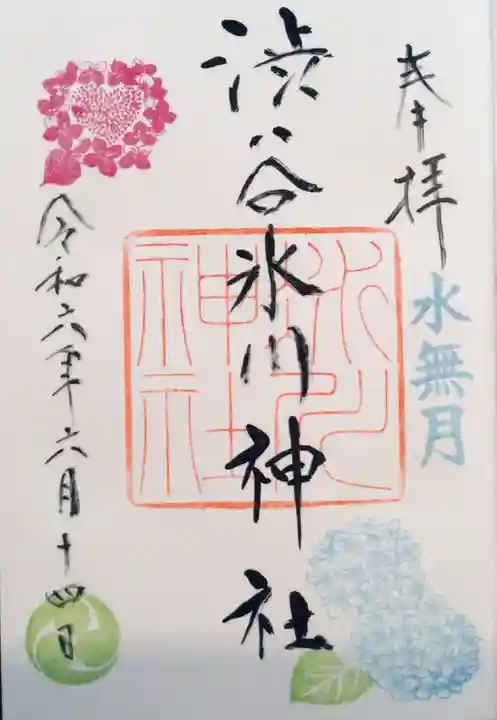 奉拝
水無月
渋谷氷川神社
氷川神社
令和六年六月十四日